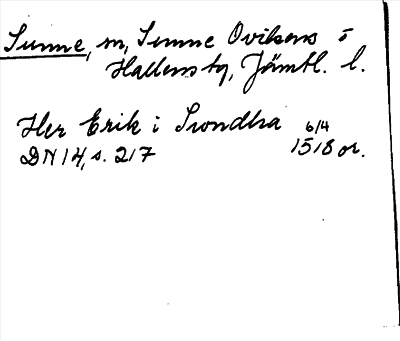 Sunne, m, Sunne Ovikens o
Hallens tg, Jämtl. l.
Her Erik i Swndha 6/4
DN 14, s. 217 1518 or.